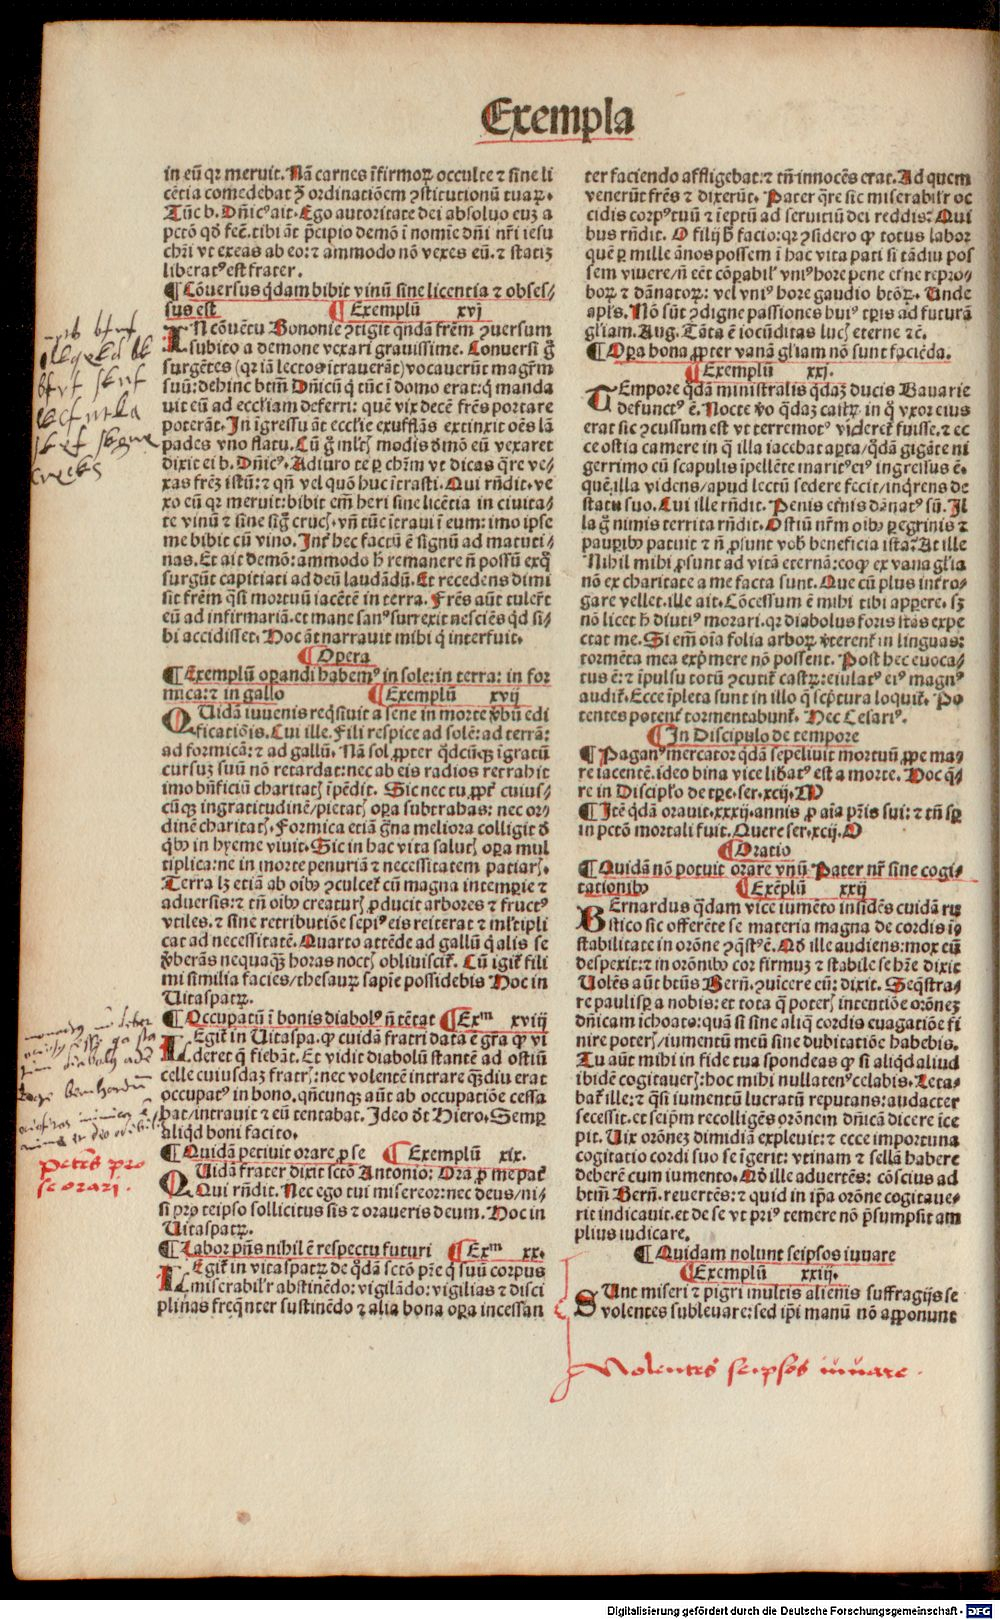 Exempla
in eū qr meruit. Nā carnes īfirmoꝝ occulte ⁊ sine li
cētia comedebat ꝯ̄ ordinatiōem ꝯstitutionū tuaꝝ.
Tūc b. Dn̄icꝰ ait. Ego autoritate dei absoluo euꝫ a
pctō qd̄ fec̄. tibi āt p̄cipio demō ī nomīe dn̄i nr̄i iesu
chr̄i vt exeas ab eo: ⁊ ammodo nō vexes eū. ⁊ statiꝫ
liberatꝰ est frater.
¶ Cōuersus qdam bibit vinū sine licentia ⁊ obses-
sus est ¶ Exemplū xvj
IN cōuētu Bononie ꝯtigit qndā frēm ꝯuersum
subito a demone vexari grauissime. Conuersi g̈
surgētes (qr iā lectos ītrauerāt) vocauerūt magr̄m
suū: dehinc btm̄ Dn̄icū q̇ tūc ī domo erat: q̇ manda
uit eū ad eccliam deferri: quē vix decē fr̄es portare
poterāt. In īgressu āt ecclie exufflās extinxit oēs lā
pades vno flatu. Cū g̈ ml̄tis modis dmō eū vexaret
dixit ei b. Dn̄icꝰ. Adiuro te ꝑ chm̄ vt dicas q̄re ve-
xas frēꝫ istū: ⁊ qn̄ vel quō huc ītrasti. Qui rn̄dit. ve
xo eū qr meruit: bibit em̄ heri sine licētia in ciuita-
te vinū ⁊ sine sig̈ crucis. vn̄ tūc ītraui ī eum: imo ipse
me bibit cū vino. Int̄ hec factū ē signū ad matuti-
nas. Et ait demō: ammodo h̄ remanere n̄ possū exq̇
surgūt capitiati ad deū laudādū. Et recedens dimi
sit frēm q̄si mortuū iacētē in terra. Frēs aūt tuler̄t
eū ad infirmariā. et mane sanꝰ surrexit nesciēs qd̄ si-
bi accidisset. Hoc āt narrauit mihi q̇ interfuit.
¶ Opera
¶ Exemplū oꝑandi habemꝰ in sole: in terra: in for
mica: ⁊ in gallo ¶ Exemplū xvij
QUidā iuuenis reqsiuit a sene in morte v̄bū edi
ficatiōis. Cui ille. Fili respice ad solē: ad terrā:
ad formicā: ⁊ ad gallū. Nā sol ꝓpter qdcūqꝫ īgratū
cursuꝫ suū nō retardat: nec ab eis radios retrahit
imo bn̄ficiū charitatis īpēdit. Sic nec tu ꝓpt̄ cuius-
cūqꝫ ingratitudinē/pietatis oꝑa subtrabas: nec or-
dinē charitatis. Formica etiā g̈na meliora colligit d̄
qbꝰ in hyeme viuit. Sic in hac vita salutis oꝑa mul
tiplica: ne in morte penuriā ⁊ necessitatem patiaris.
Terra lꝫ etiā ab oibꝰ ꝯculcet̄ cū magna intemꝑie ⁊
aduersis: ⁊ tn̄ oibꝰ creaturis ꝓducit arbores ⁊ fructꝰ
vtiles. ⁊ sine retributiōe sepiꝰ eis reiterat ⁊ ml̄tipli
cat ad necessitatē. Quarto attēde ad gallū q̇ alis se
v̄berās nequaqꝫ horas noctis obliuiscit̄. Cū igit̄ fili
mi similia facies/thesauꝝ sapīe possidebis Hoc in
Uitaspatꝝ.
¶ Occupatū ī bonis diabolꝰ n̄ tētat ¶ Exm xviij
LEgit̄ in Uitaspa. ꝙ cuidā fratri data ē gr̄a ꝙ vi
deret q̄ fiebāt. Et vidit diabolū stantē ad ostiū
celle cuiusdaꝫ fratris: nec volentē intrare qꝫdiu erat
occupatꝰ in bono. qn̄cunqꝫ aūt ab occupatiōe cessa
bat/intrauit ⁊ eū tentabat. Ideo dt̄ Hiero. Semꝑ
aliqd boni facito.
¶ Quidā petiuit orare ꝓ se ¶ Exemplū xix.
QUidā frater dixit sctō Antonio: Ora ꝓ me pat̄
Qui rn̄dit. Nec ego tui misereor: nec deus/ni-
si ꝓ teipso sollicitus sis ⁊ oraueris deum. Hoc in
Uitaspatꝝ.
¶ Labor pn̄s nihil ē respectu futuri ¶ Exm xx.
LEgit̄ in vitaspatꝝ de qdā sctō pr̄e q̇ suū corpus
miserabilr̄ abstinēdo: vigilādo: vigilias ⁊ disci
plinas freqnter sustinēdo ⁊ alia bona oꝑa incessan
ter faciendo affligebat: ⁊ tn̄ innocēs erat. Ad quem
venerūt fr̄es ⁊ dixerūt. Pater q̄re sic miserabilr̄ oc
cidis corpꝰ tuū ⁊ īeptū ad seruitiū dei reddis: Qui
bus rn̄dit. O filij h̄ facio: qr ꝯsidero ꝙ totus labor
quē ꝑ mille ānos possem ī hac vita pati si tādiu pos
sem viuere/n̄ eēt cōꝑabilꝰ vniꝰ hore pene et̄ne repro-
boꝝ ⁊ dānatoꝝ: vel vniꝰ hore gaudio btōꝝ. Unde
apl̄s. Nō sūt ꝯdigne passiones huiꝰ tꝑis ad futurā
gliam. Aug. Tāta ē iocūditas lucis eterne ⁊c̄.
¶ Oꝑa bona ꝓpter vanā gliam nō sunt faciēda.
¶ Exemplū xxj.
TEmpore qdā ministralis qdaꝫ ducis Bauarie
defunctꝰ ē. Nocte v̄o qdaꝫ castꝝ in q̇ vxor eius
erat sic ꝯcussum est vt terremotꝰ videret̄ fuisse. ⁊ ec
ce ostia camere in q̄ illa iacebat aꝑta/qdā gigāte ni
gerrimo eū scapulis īpellēte maritꝰ eiꝰ ingressus ē.
quē illa videns/apud lectū sedere fecit/inqrens de
statu suo. Cui ille rn̄dit. Penis et̄nis dānatꝰ sū. Il
la g̈ nimis territa rn̄dit. Ostiū nr̄m oibꝰ ꝑegrinis ⁊
pauꝑibꝰ patuit ⁊ n̄ ꝓsunt vob̄ beneficia ista? At ille
Nihil mihi ꝓsunt ad vitā eternā: eoqꝫ ex vana glia
nō ex charitate a me facta sunt. Que cū plus inter̄ro-
gare vellet. ille ait. Cōcessum ē mihi tibi apꝑere. sꝫ
nō licet h̄ diutiꝰ morari. qr diabolus foris stās expe
ctat me. Si em̄ oīa folia arboꝝ v̄terent̄ in linguas:
tormēta mea exp̄mere nō possent. Post hec euoca-
tus ē: ⁊ īpulsu totū ꝯcutit̄ castꝝ: eiulatꝰ eiꝰ magnꝰ
audit̄. Ecce īpleta sunt in illo q̄ scp̄tura loquit̄. Po
tentes potent̄ tormentabunt̄. Hec Cesariꝰ.
¶ In Discipulo de tempore
¶ Paganꝰ mercator qdā sepeliuit mortuū ꝓpe ma-
re iacentē. ideo bina vice lib̄atꝰ est a morte. Hoc q̄-
re in Disciplo de tꝑe. ser. xcij. N
¶ Itē qdā orauit. xxxij. annis ꝓ aīa pr̄is sui: ⁊ tn̄ sꝑ
in pctō mortali fuit. Quere ser. xcij. O
¶ Oratio
¶ Quidā nō potuit orare vnū Pater nr̄ sine cogi-
tationibꝰ ¶ Exēplū xxij
BErnardus qdam vice iumēto insidēs cuidā ru
stico sic offerēte se materia magna de cordis in
stabilitate in orōne ꝯq̄stꝰ ē. Qd̄ ille audiens: mox eū
despexit: ⁊ in orōnibꝰ cor firmuꝫ ⁊ stabile se hr̄e dixit
Uolēs aūt btūs Bern̄. ꝯuīcere eū: dixit. Seqstra-
re paulisꝑ a nobis: et tota q̄ poteris intentiōe orōneꝫ
dn̄icam ichoato: quā si sine aliq̄ cordis euagatiōe fi
nire poteris/iumentū meū sine dubitatiōe habebis.
Tu aūt mihi in fide tua spondeas ꝙ si aliqd aliud
ibidē cogitaueris: hoc mihi nullatenꝰ celabis. Leta-
bat̄ ille: ⁊ q̄si iumentū lucratū reputans: audacter
secessit. et seipm̄ recolligēs orōnem dn̄icā dicere īce
pit. Uix orōneꝫ dimidiā expleuit: ⁊ ecce importuna
cogitatio cordi suo se īgerit: vtinam ⁊ sellā habere
deberē cum iumento. Qd̄ ille aduertēs: cōscius ad
btm̄ Bern̄. reuertēs: ⁊ quid in ip̄a orōne cogitaue-
rit indicauit. et de se vt priꝰ temere nō p̄sumpsit am
plius iudicare.
¶ Quidam nolunt seipsos iuuare
¶ Exemplū xxiij.
SUnt miseri ⁊ pigri multis alienis suffragijs se
volentes subleuare: sed ip̄i manū nō apponunt
Petens pro
se orari.
Nolentes seipsos iuuare.
Digitalisierung gefördert durch die Deutsche Forschungsgemeinschaft - DFG